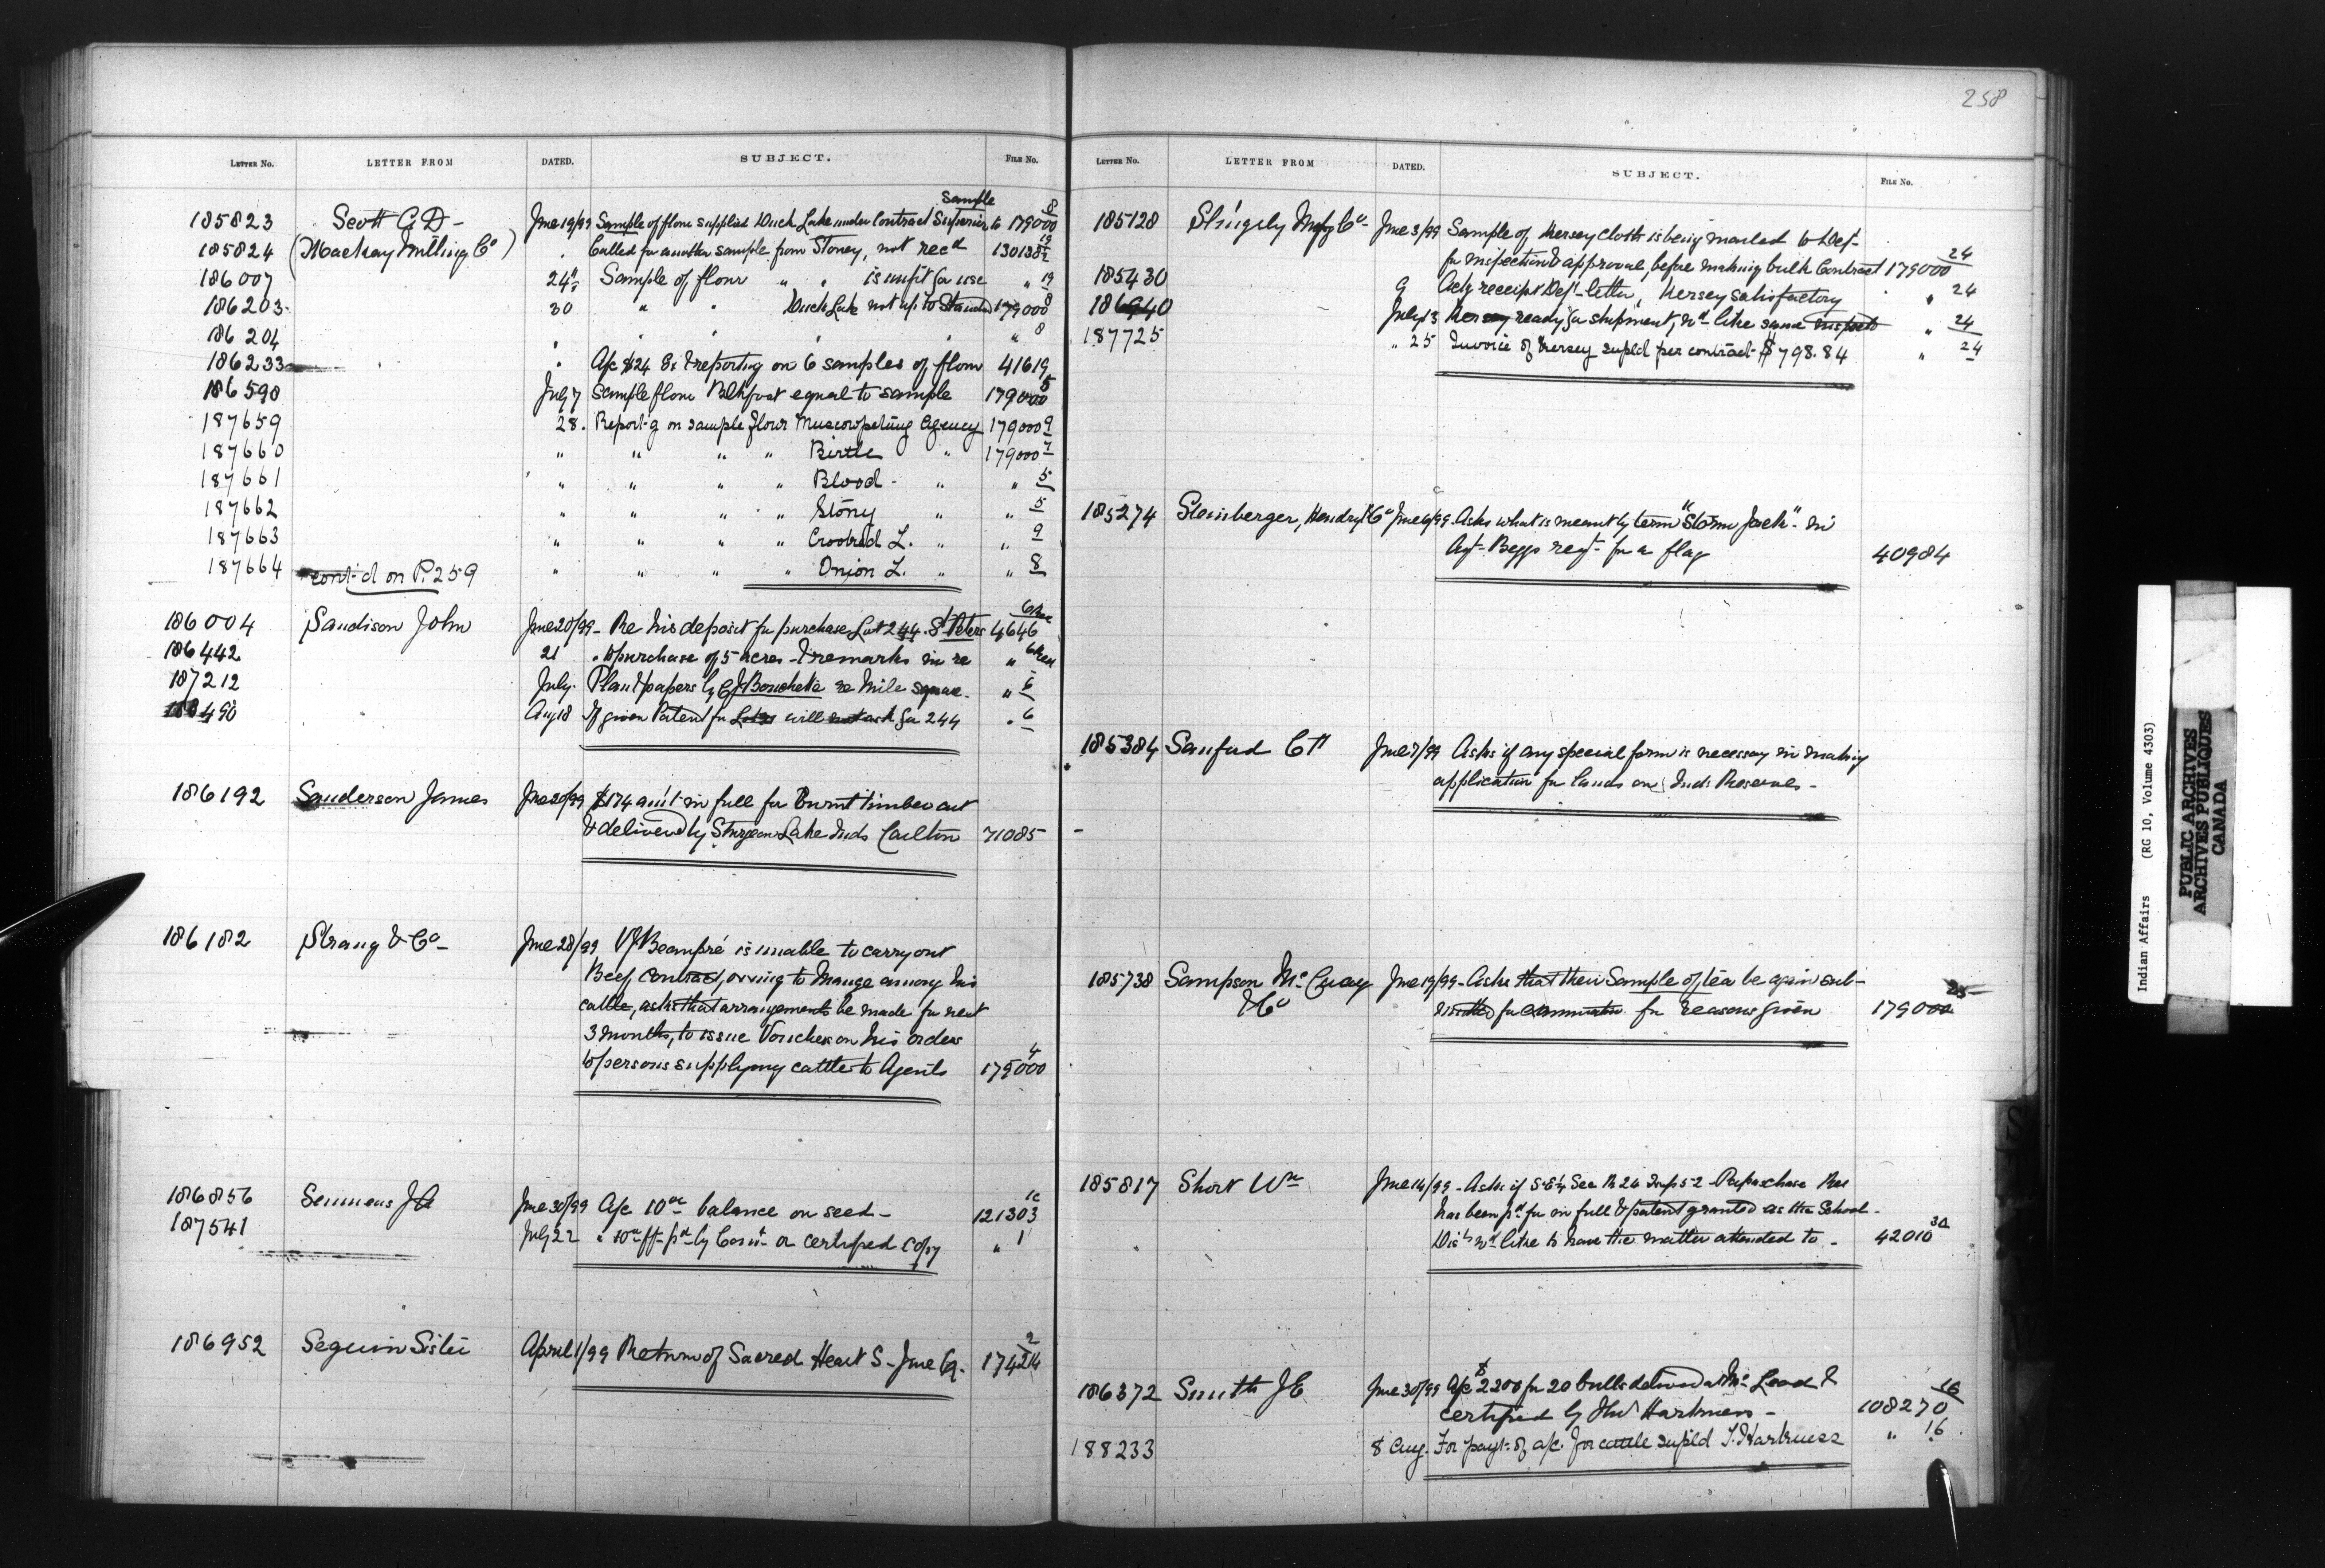 258
LETTER No. LETTER FROM DATED. SUBJECT. FILE No.
Sample
185823 Scott C. D- June 19/99 Sample of flour supplied Duck Lake under Contract Superior to 179000 8
185824 (Mackay Milling Co) " Called for another sample from Stoney, not recd 130138 19/2
186007 24" Sample of flour " " is unfit for use " 19
186203 30 " " Duck Lake not up to Standard 179000 8
186204 " " " " 8
186233 " A/c $24 Ex & reporting on 6 samples of flour 41619
186590 July 7 Sample flour equal to sample 179000 5
187659 28. Report-g on sample flour Muscowpetung Agency 179000 9
187660 " " " " Birtle " 179000 7
187661 " " " " Blood - " " 5
187662 " " " " Stony " " 5
187663 " " " " Crooked L. " " 9
187664 cont'd on P. 259 " " " " Onion L. " " 8
186004 Sandison John June 20/99 - Re his deposit for purchase Lot 244. St Peters 4646
186442 21 " to purchase of 5 acres - & remarks in re "
187212 July. Plan & papers by re Mile square. " 6
188490 Aug 18 If given Patent for will not ask for 244 " 6
186192 Sanderson James June 20/99 $174 am't in full for burnt timber cut
& delivered by Sturgeon Lake Inds Carlton 71085
186182 Strang & Co- June 28/99 Beaupré is unable to carry out
Beef Contract, owing to Mange among his
cattle, asks that arrangements be made for next
3 months, to issue Vouchers on his orders
to persons supplying cattle to Agents 179000 4
186856 Semmens J A June 30/99 A/c 10 00 balance on seed - 121303
187541 July 22 " or certified copy " 1
186952 Seguin Sister April 1/99 Return of Sacred Heart S - June Q. 174214 2
LETTER No. LETTER FROM DATED. SUBJECT. FILE No.
185128 Slingsby Mnfg Co- June 3/99 Sample of Kersey cloth is being mailed to Dept-
for inspection & approval, before making bulk Contract 179000 24
185430 9 Ackg receipt Dept- letter, Kersey satisfactory " 24
186940 July 13 Kersey ready for shipment, wd like same inspectd " 24
187725 " 25 Invoice of Kersey supl'd per contract - $798.84 " 24
185274 Steinberger, Hendry Co June 6/99 - Asks what is meant by term "Storm Jack" - in
Agt- Beggs reqt- for a flag 40984
185384 Sanford C H June 7/99 Asks if any special form is necessary in making
application for lands on Ind: Reserves -
185738 Sampson McCuaig June 19/99 - Asks that their Sample of tea be again sub-
& Co mitted for for reasons given 179000 25
185817 Short Wm June 14/99 - Asks if S.E¼ Sec 24 Tmp 52 -
has been pd for in full & patent granted as the School -
Dist wd like to have the matter attended to - 42010
186372 Smith J E June 30/99 A/c $2200 for 20 bulls delivered at McLeod &
certified by Harkness - 108270 16
188233 8 Aug. For payt- of a/c. for cattle supl'd Harkness " 16
Indian Affairs (RG 10, Volume 4303)
PUBLIC ARCHIVES
ARCHIVES PUBLIQUES
CANADA